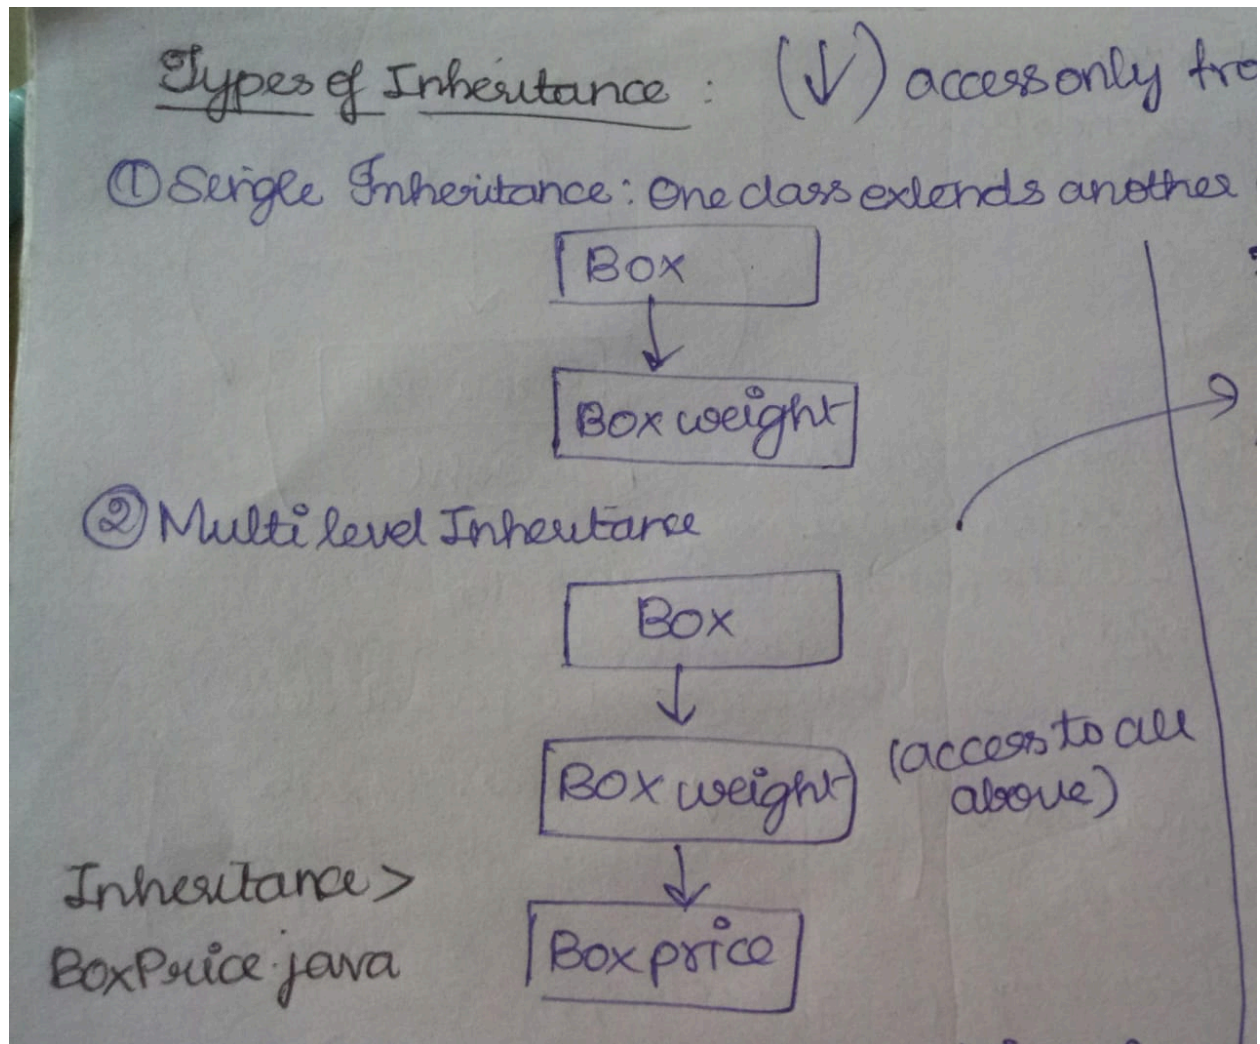 Types of Inheritance : (↓) access only fro
① Single Inheritance : One class extends another
Box
Box weight
② Multilevel Inheritance
Box
Box weight
(access to all
above)
Box price
Inheritance >
BoxPrice.java